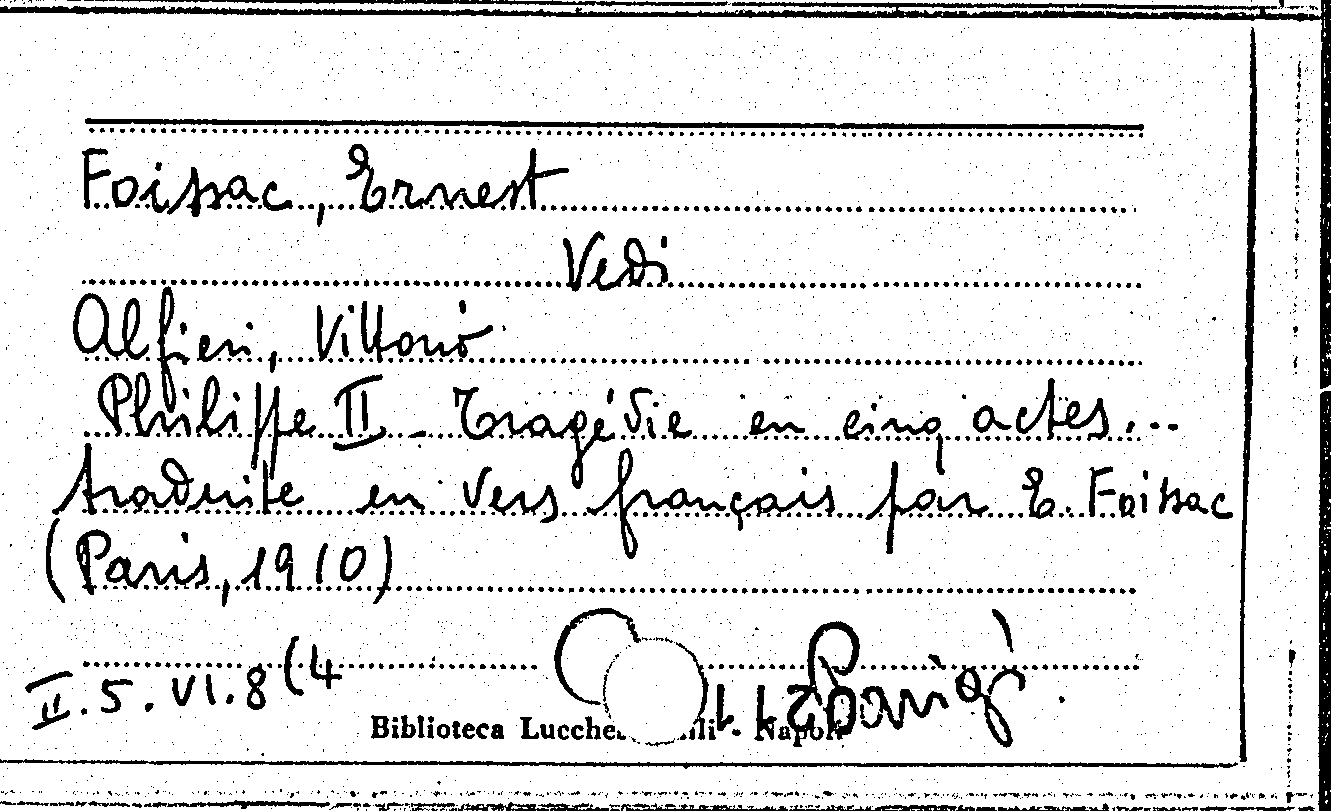 Foissac, Ernest
Vedi
Alfieri, Vittorio
Philippe II - Tragédie en cinq actes...
traduite en vers français par E. Foissac
(Paris, 1910)
II.5.VI.8(4
Biblioteca Lucchesi - Napoli